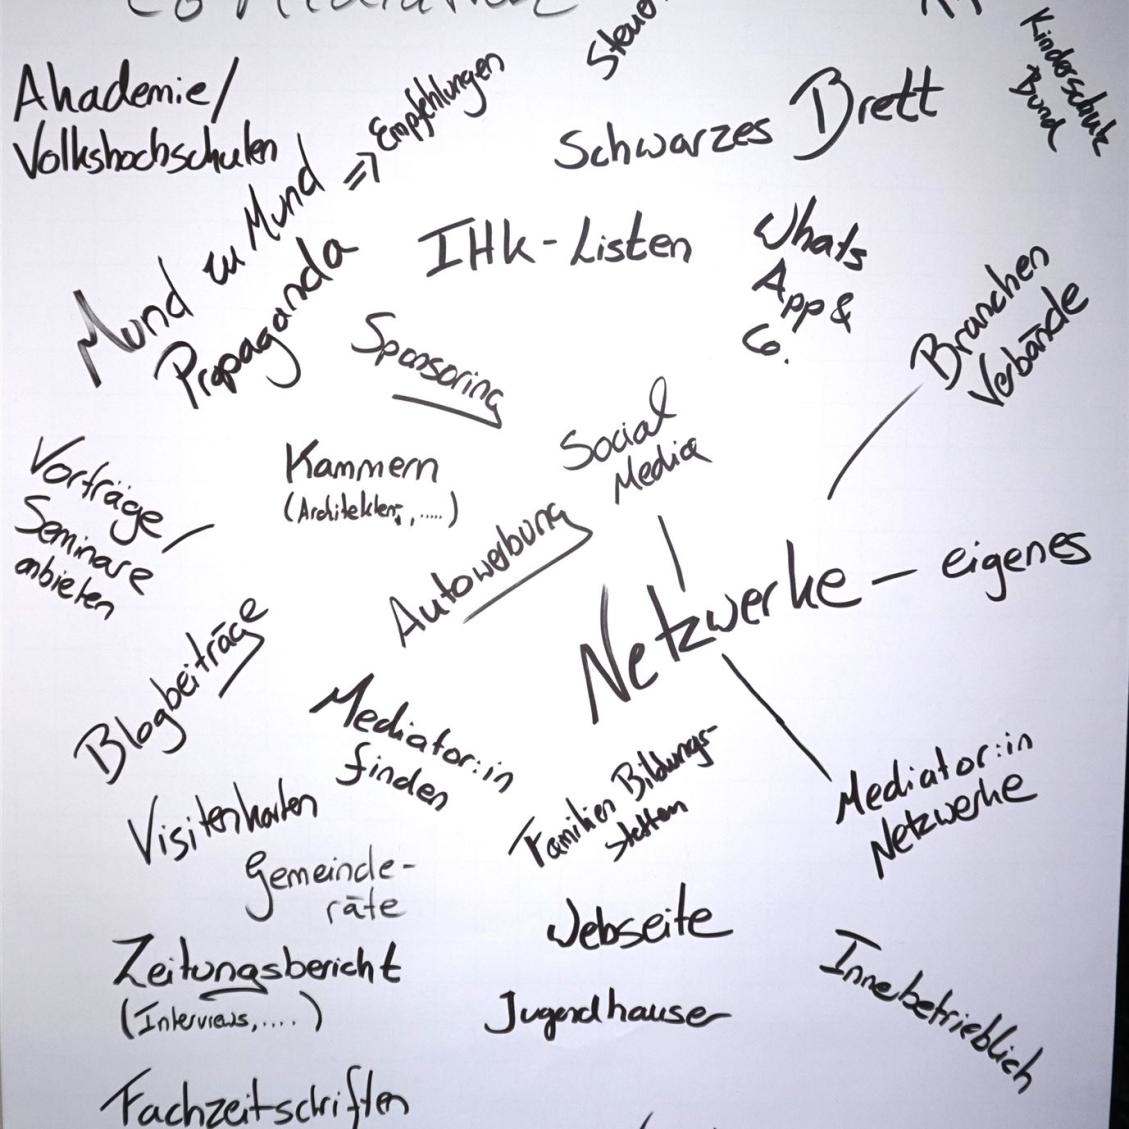 Co Mediation
Kinderschutz
Bund
Akademie/
Volkshochschulen
Mund zu Mund => Empfehlungen
Propaganda
Schwarzes Brett
IHK-Listen
Whats
App &
Co.
Branchen
Verbände
Sponsoring
Social
Media
Kammern
(Architekten, .....)
Vorträge
Seminare
anbieten
Autowerbung
Netzwerke - eigenes
Blogbeiträge
Mediator:in
finden
Familien Bildungs-
stätten
Mediator:in
Netzwerke
Visitenkarten
Gemeinde-
räte
Webseite
Zeitungsbericht
(Interviews, ....)
Jugendhäuser
Innebetrieblich
Fachzeitschriften